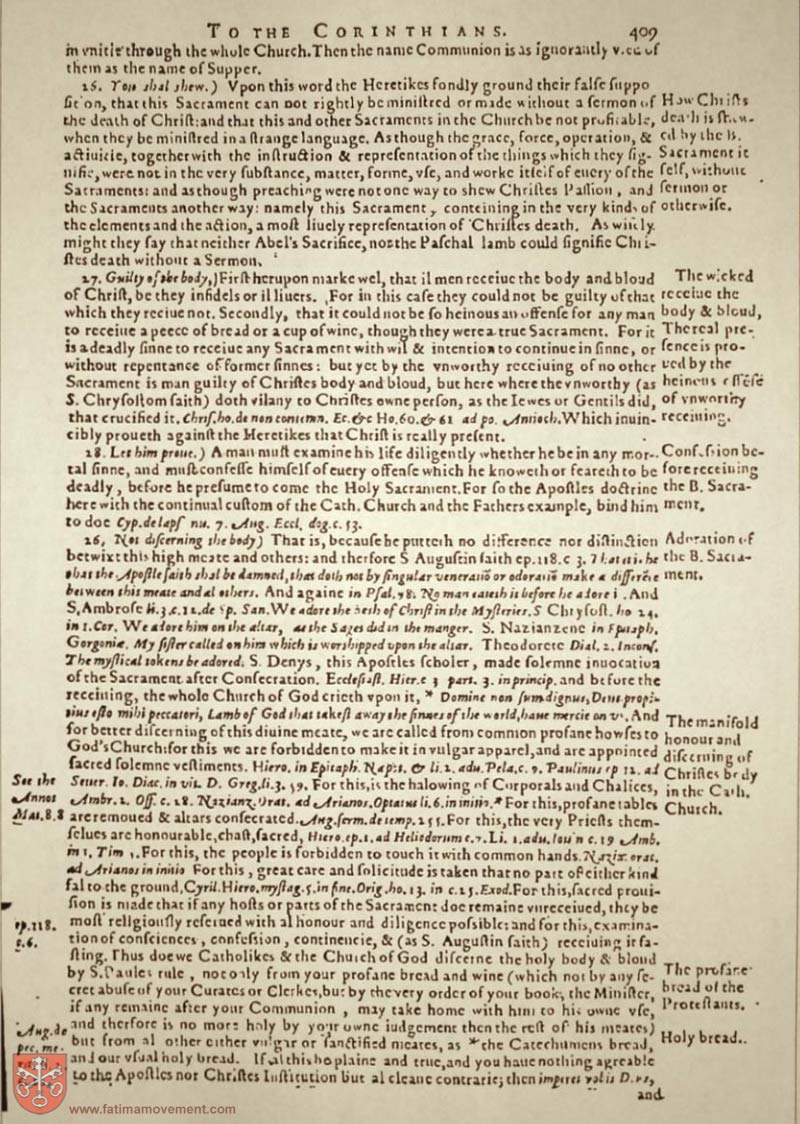 TO THE CORINTHIANS. 409
in vnitie through the whole Church. Then the name Communion is as ignorantly of
them as the name of Supper.
26. You shal shew.) Vpon this word the Heretikes fondly ground their false suppo
sition, that this Sacrament can not rightly be ministred or made without a sermon of
the death of Christ: and that this and other Sacraments in the Church be not profitable,
when they be ministred in a strange language. As though the grace, force, operation, &
actiuitie, together with the instruction & representation of the things which they sig-
nifie, were not in the very substance, matter, forme, vse, and worke it self of euery of the
Sacraments: and as though preaching were not one way to shew Christes Passion, and
the Sacraments another way: namely this Sacrament, conteining in the very kinds of
the elements and the action, a most liuely representation of Christes death. As wisely
might they say that neither Abel's Sacrifice, nor the Paschal lamb could signifie Chri-
stes death without a Sermon.
How Christs
death is shew-
ed by the B.
Sacrament it
self, without
sermon or
otherwise.
27. Guilty of the body,) First herupon marke wel, that il men receiue the body and bloud
of Christ, be they infidels or il liuers. For in this case they could not be guilty of that
which they reciue not. Secondly, that it could not be so heinous an offense for any man
to receiue a peece of bread or a cup of wine, though they were a true Sacrament. For it
is a deadly sinne to receiue any Sacrament with wil & intention to continue in sinne, or
without repentance of former sinnes: but yet by the vnworthy receiuing of no other
Sacrament is man guilty of Christes body and bloud, but here where the vnworthy (as
S. Chrysostom saith) doth vilany to Christes owne person, as the Iewes or Gentils did,
that crucified it. Chrys. ho. de non contemn. Ec. &c Ho. 60. & 61 ad po. Antioch. Which inuin-
cibly proueth against the Heretikes that Christ is really present.
The wicked
receiue the
body & bloud,
The real pre-
sence is pro-
ued by the
heinous offese
of vnworthy
receiuing.
28. Let him proue.) A man must examine his life diligently whether he be in any mor-
tal sinne, and must confesse himself of euery offense which he knoweth or feareth to be
deadly, before he presume to come the Holy Sacrament. For so the Apostles doctrine
here with the continual custom of the Cath. Church and the Fathers example, bind him
to doe Cyp. de laps nu. 7. Aug. Eccl. dog. c. 53.
Confession be-
fore receiuing
the B. Sacra-
ment.
26, Not discerning the body) That is, because he putteth no difference nor distinction
betwixt this high meate and others: and therfore S Augustin saith ep. 118. c 3. That it is he
that the Apostle saith shal be damned, that doth not by singular veneratiō or adoratiō make a differēce
between this meate and al others. And againe in Psal. 98. No man eateth it before he adore it. And
S, Ambrose li. 3. c. 12. de Sp. San. We adore the flesh of Christ in the Mysteries. S Chrysost. ho 24.
in 1. Cor. We adore him on the altar, as the Sages did in the manger. S. Nazianzene in Epitaph.
Gorgoniæ. My sister called on him which is worshipped vpon the altar. Theodorete Dial. 2. Inconf.
The mystical tokens be adored. S. Denys, this Apostles scholer, made solemne inuocation
of the Sacrament after Consecration. Ecclesiast. Hier. c 3 part. 3. in princip. and before the
receiuing, the whole Church of God crieth vpon it, * Domine non sum dignus, Deus propi-
tius esto mihi peccatori, Lamb of God that takest away the sinnes of the world, haue mercie on vs. And
for better discerning of this diuine meate, we are called from common profane howses to
God's Church: for this we are forbidden to make it in vulgar apparel, and are appointed
sacred solemne vestiments. Hiero. in Epitaph. Nepot. & li. 2. adu. Pela. c. 9. Paulinus ep 12. ad
Seuer. Io. Diac. in vit. D. Greg. li. 3. 59. For this, is the halowing of Corporals and Chalices,
Ambr. 2. Off. c. 28. Nazianz. Orat. ad Arianos. Optatus li. 6. in initio. * For this, profane tables
are remoued & altars consecrated. Aug. serm. de temp. 255. For this, the very Priests them-
selues are honourable, chast, sacred, Hiero. ep. 1. ad Heliodorum c. 7. Li. 1. adu. Iouin c. 19 Amb.
in 1. Tim 3. For this, the people is forbidden to touch it with common hands. Nazia. orat.
ad Arianos in initio For this, great care and solicitude is taken that no part of either kind
fal to the ground, Cyril. Hiero. mystag. 5. in fine. Orig. ho. 13. in c. 25. Exod. For this, sacred proui-
sion is made that if any hosts or parts of the Sacrament doe remaine vnreceiued, they be
most religiously reserued with al honour and diligence possible: and for this, examina-
tion of consciences, confession, continencie, & (as S. Augustin saith) receiuing it fa-
sting. Thus doe we Catholikes & the Church of God discerne the holy body & bloud
by S. Paules rule, not only from your profane bread and wine (which not by any se-
cret abuse of your Curates or Clerkes, but by the very order of your book, the Minister,
if any remaine after your Communion, may take home with him to his owne vse,
and therfore is no more holy by your owne iudgement then the rest of his meates)
but from al other either vulgar or sanctified meates, as * the Catechumens bread,
and our vsual holy bread. If al this be plaine and true, and you haue nothing agreable
to the Apostles nor Christes Institution but al cleane contrarie; then imperet vobis Deus,
and
Adoration of
the B. Sacra-
ment.
The manifold
honour and
discerning of
Christes body
in the Cath.
Church.
See the
Annot
Mat. 8. 8
ep. 118.
c. 6.
The profane
bread of the
Protestants.
Aug. de
pec. me-
Holy bread.
www.fatimamovement.com